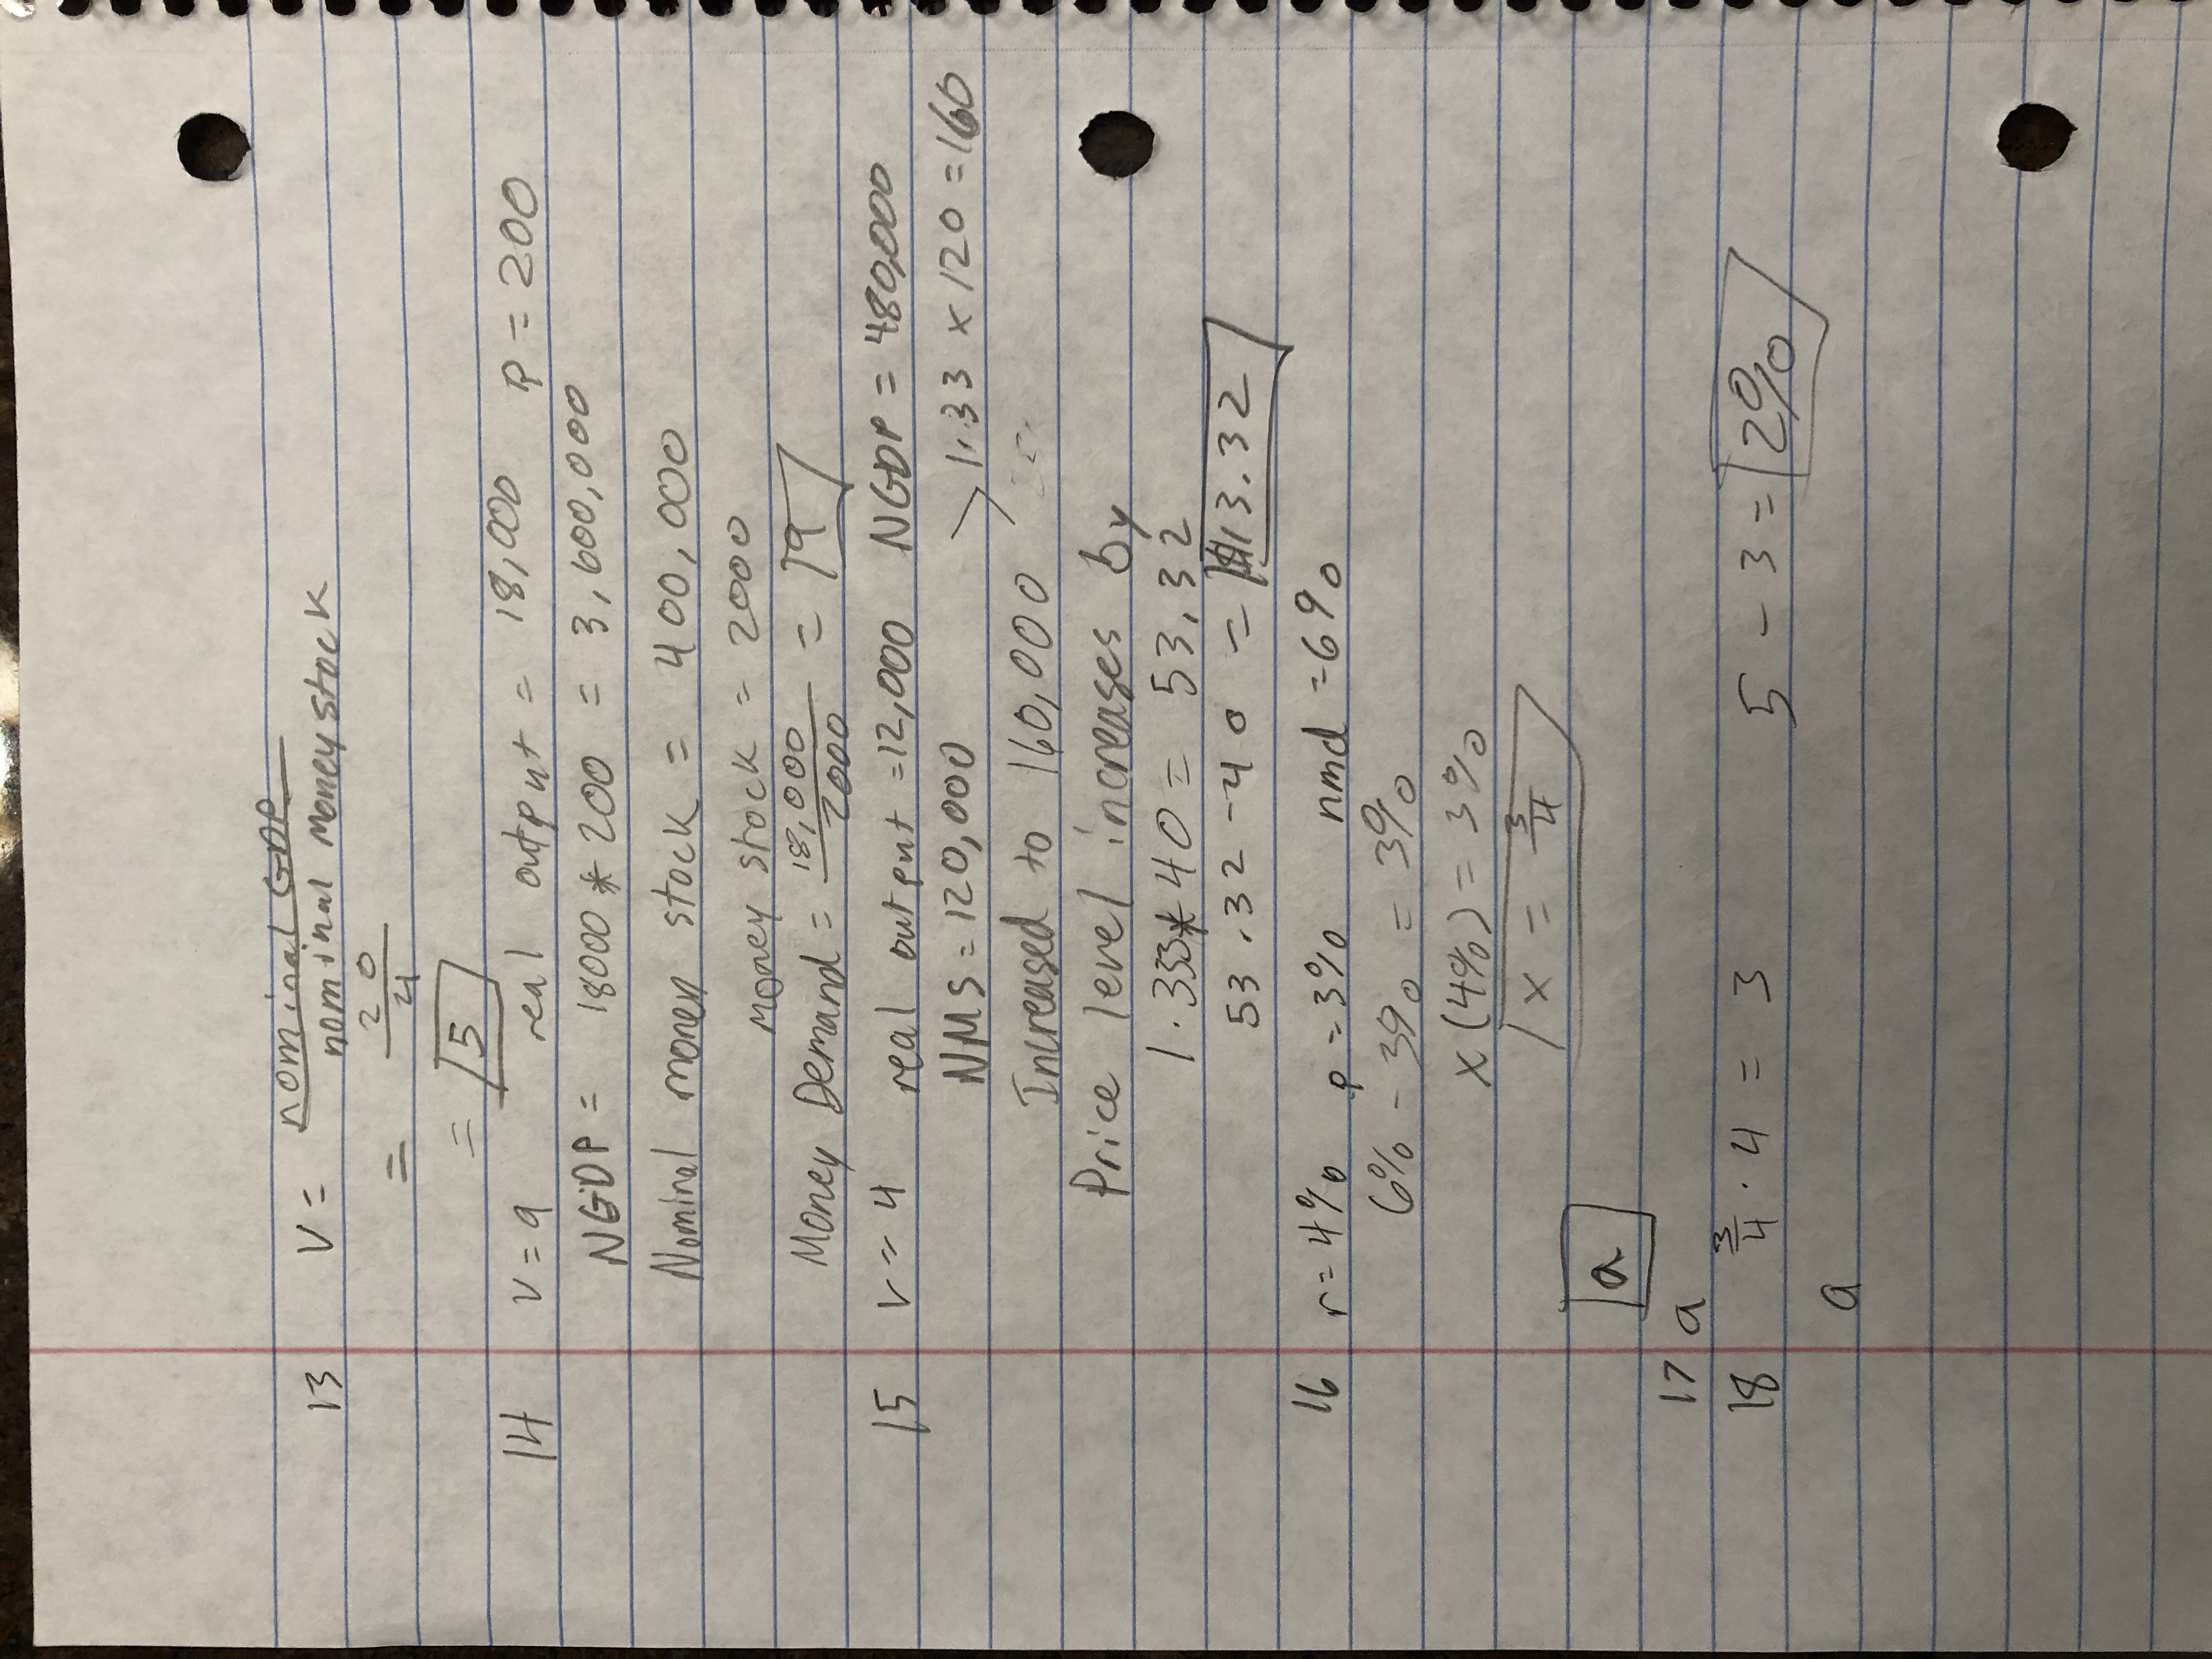 13 V = nominal GDP
nominal money stock
= 20
4
= 5
14 V = 9 real output = 18,000 P = 200
NGDP = 18000 * 200 = 3,600,000
Nominal money stock = 400,000
money stock = 2000
Money Demand = 18,000 / 2000 = 9
15 V = 4 real output = 12,000 NGDP = 480,000
NMS = 120,000 > 1.33 x 120 = 160
Increased to 160,000
Price level increases by
1.333 * 40 = 53.32
53.32 - 40 = $13.32
16 r = 4% p = 3% nmd = 6%
6% - 3% = 3%
x (4%) = 3%
x = 3/4
a
17 a
18 3/4 · 4 = 3 5 - 3 = 2%
a